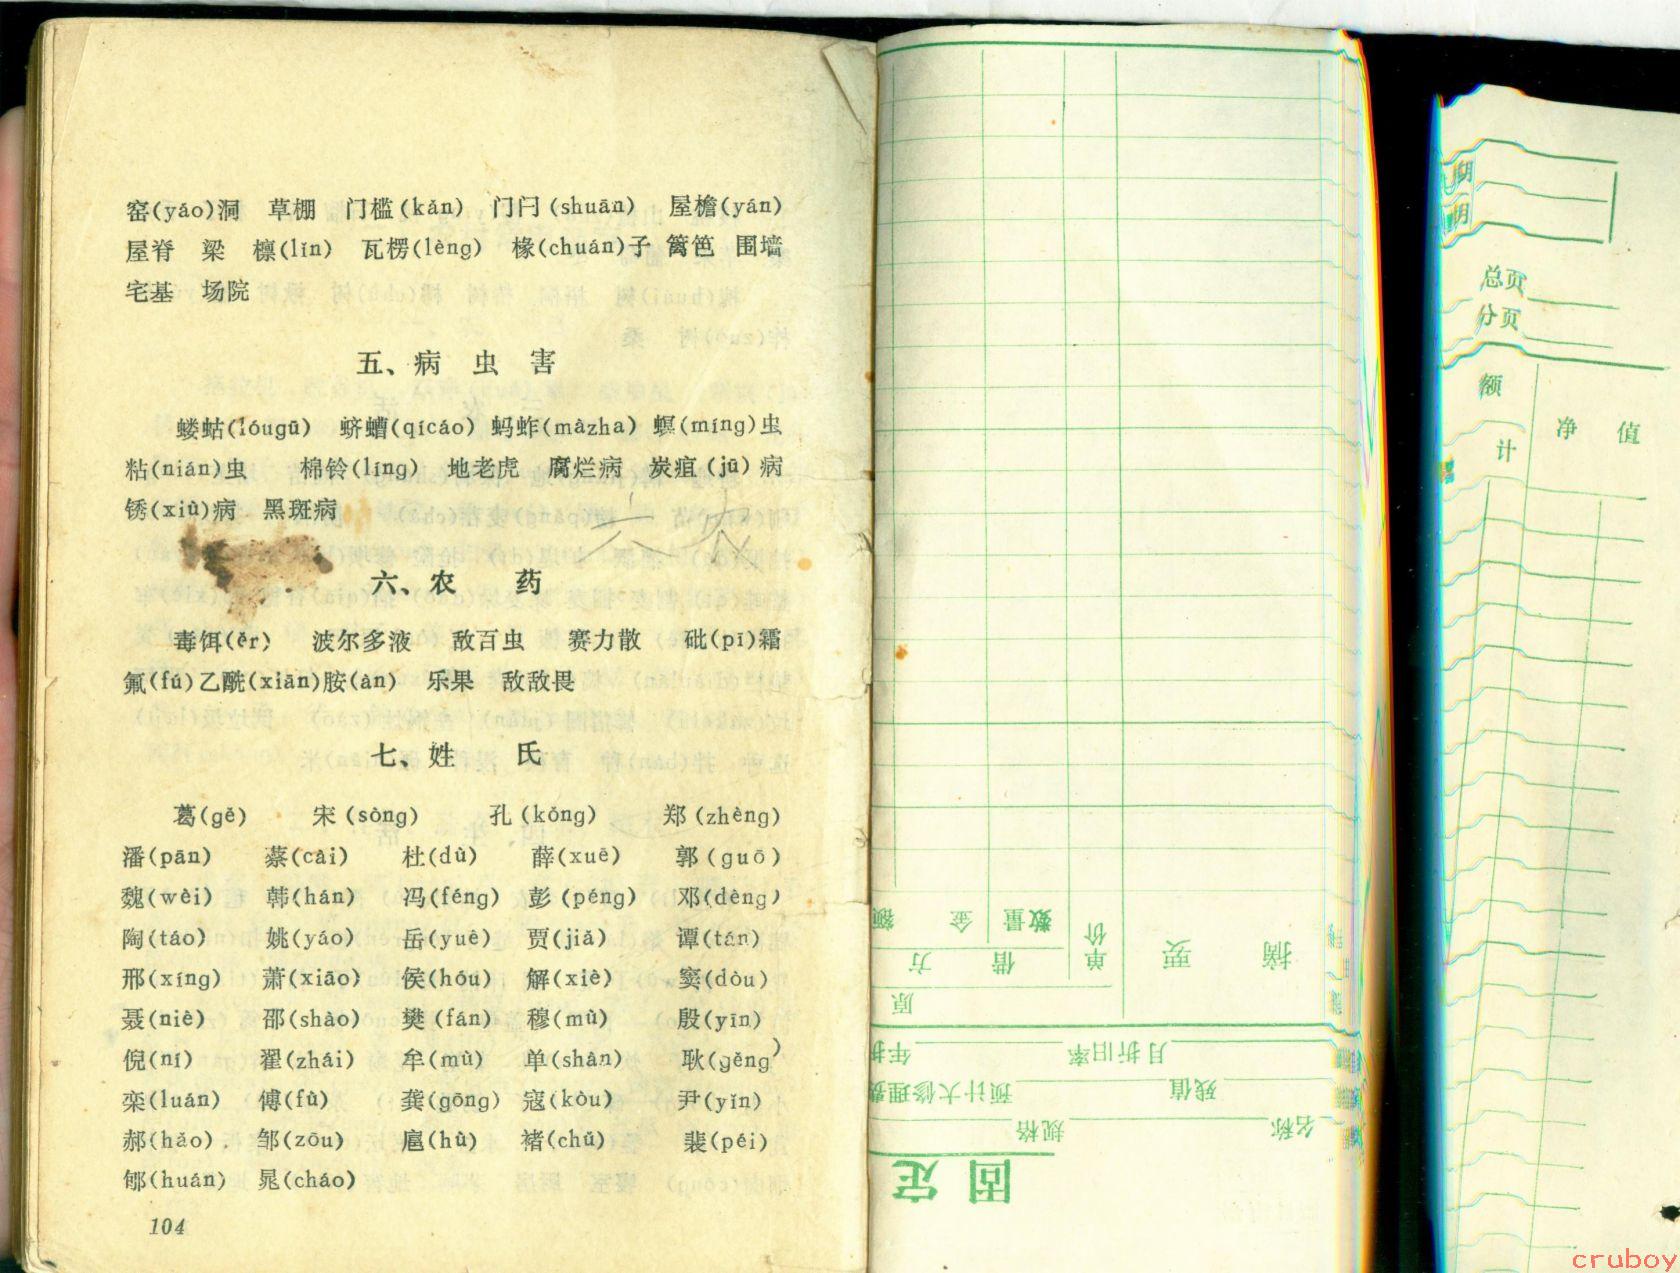 窑(yáo)洞 草棚 门槛(kǎn) 门闩(shuān) 屋檐(yán)
屋脊 梁 檩(lǐn) 瓦楞(lèng) 椽(chuán)子 篱笆 围墙
宅基 场院
五、病 虫 害
蝼蛄(lóugū) 蛴螬(qícáo) 蚂蚱(màzha) 螟(míng)虫
粘(nián)虫 棉铃(líng) 地老虎 腐烂病 炭疽(jū)病
锈(xiù)病 黑斑病
六、农 药
毒饵(ěr) 波尔多液 敌百虫 赛力散 砒(pī)霜
氟(fú)乙酰(xiān)胺(àn) 乐果 敌敌畏
七、姓 氏
葛(gě) 宋(sòng) 孔(kǒng) 郑(zhèng)
潘(pān) 蔡(cài) 杜(dù) 薛(xuē) 郭(guō)
魏(wèi) 韩(hán) 冯(féng) 彭(péng) 邓(dèng)
陶(táo) 姚(yáo) 岳(yuè) 贾(jiǎ) 谭(tán)
邢(xíng) 萧(xiāo) 侯(hóu) 解(xiè) 窦(dòu)
聂(niè) 邵(shào) 樊(fán) 穆(mù) 殷(yīn)
倪(ní) 翟(zhái) 牟(mù) 单(shàn) 耿(gěng)
栾(luán) 傅(fù) 龚(gōng) 寇(kòu) 尹(yǐn)
郝(hǎo) 邹(zōu) 扈(hù) 褚(chǔ) 裴(péi)
郇(huán) 晁(cháo)
104
固定
名称 规格
残值 预计大修理费
月折旧率 年折
原
摘 要 单价 借 方
数量 金 额
总页
分页
额
计 净 值
cruboy